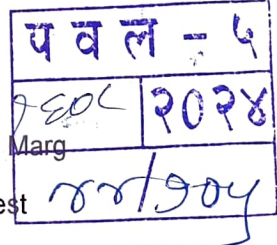 पवल - ५
१६०८ २०२४
Marg
est ४४/१०५